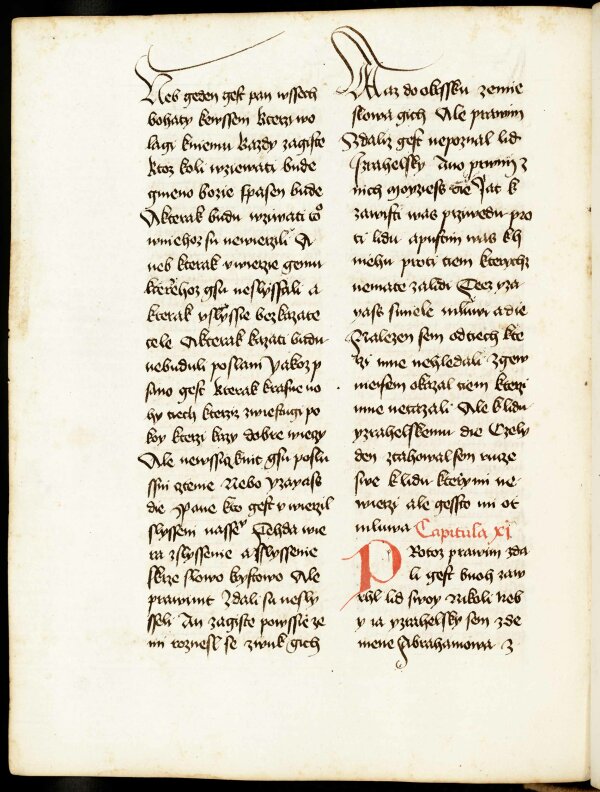 Neb geden gest pan wssech
bohaty kewssem kterzi wo
lagi kniemu Kazdy zagiste
ktoz koli wziewati bude
gmeno bozie spasen bude
Akterak budu wziwati toº
wniehoz su newierzili A
neb kterak vwierzie gemu
kterehoz gsu neslyssali a
kterak vslyssie bezkazate
tele Akterak kazati budu
nebuduli poslani yakoz p
sano gest kterak krasne no
hy tiech kterziz zwiestugi po
koy kterzi kazy dobre wiezy
Ale newssiczkni gsu poslu
ssni cztenie Nebo yzayass
die Pane kto gest vwierzil
slyssem nassem Tehda wie
ra zslyssenie a slyssenie
skrze slowo krystowo Ale
prawimt Zdali su nesly
sseli An zagiste powssie ze
mi roznesl se zwuk gich
A az do okrssku zemie
slowa gich Ale prawim
Zdaliz gest nepoznal lid
Izrahelsky Ano prwnij z
nich moyziess die Jat k
zawisti was prziwedu pro
ti lidu apustim was kh
niewu proti tiem kterychz
nemate zalidi Teez yza
yass smiele mluwi adie
Nalezen sem odtiech kte
rzi mne nehledali zgew
niesem okazal tiem kterzi
mne netazali Ale klidu
yzrahelskemu die Czely
den ztahowal sem rucze
swe klidu kteryz mi ne
wierzi ale gessto mi ot
mluwa Capitula xi
Protoz prawim zda
li gest buoh zaw
rhl lid swoy Nikoli neb
y ia yzrahelsky sem zde
mene Abrahamowa z